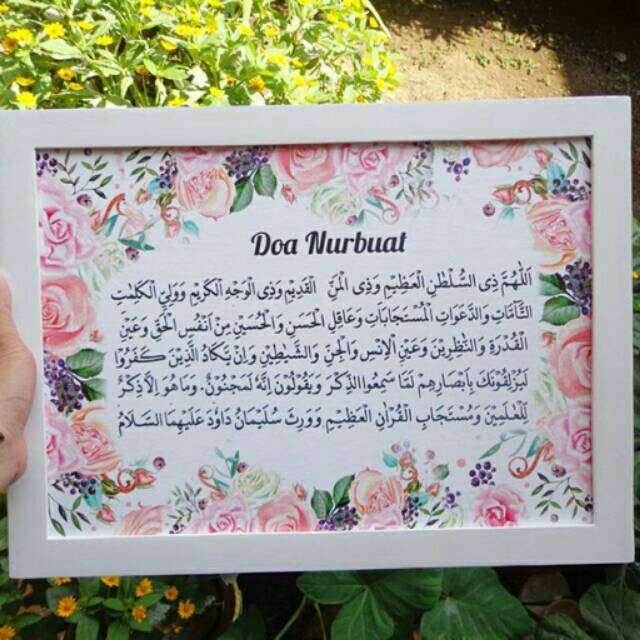 Doa Nurbuat
اَللّٰهُمَّ ذِى السُّلْطٰنِ الْعَظِيْمِ وَذِى الْمَنِّ الْقَدِيْمِ وَذِى الْوَجْهِ الْكَرِيْمِ وَوَلِيِّ الْكَلِمٰتِ
التَّآمَّاتِ وَالدَّعَوَاتِ الْمُسْتَجَابَاتِ وَعَاقِلِ الْحَسَنِ وَالْحُسَيْنِ مِنْ اَنْفُسِ الْحَقِّ وَعَيْنِ
الْقُدْرَةِ وَالنّٰظِرِيْنَ وَعَيْنِ الْاِنْسِ وَالْجِنِّ وَالشَّيٰطِيْنِ وَاِنْ يَّكَادُ الَّذِيْنَ كَفَرُوْا
لَيُزْلِقُوْنَكَ بِاَبْصَارِهِمْ لَمَّا سَمِعُوا الذِّكْرَ وَيَقُوْلُوْنَ اِنَّهٗ لَمَجْنُوْنٌ، وَمَا هُوَ اِلَّا ذِكْرٌ
لِّلْعٰلَمِيْنَ وَمُسْتَجَابِ الْقُرْاٰنِ الْعَظِيْمِ وَوَرِثَ سُلَيْمَانُ دَاوٗدَ عَلَيْهِمَا السَّلَامُ